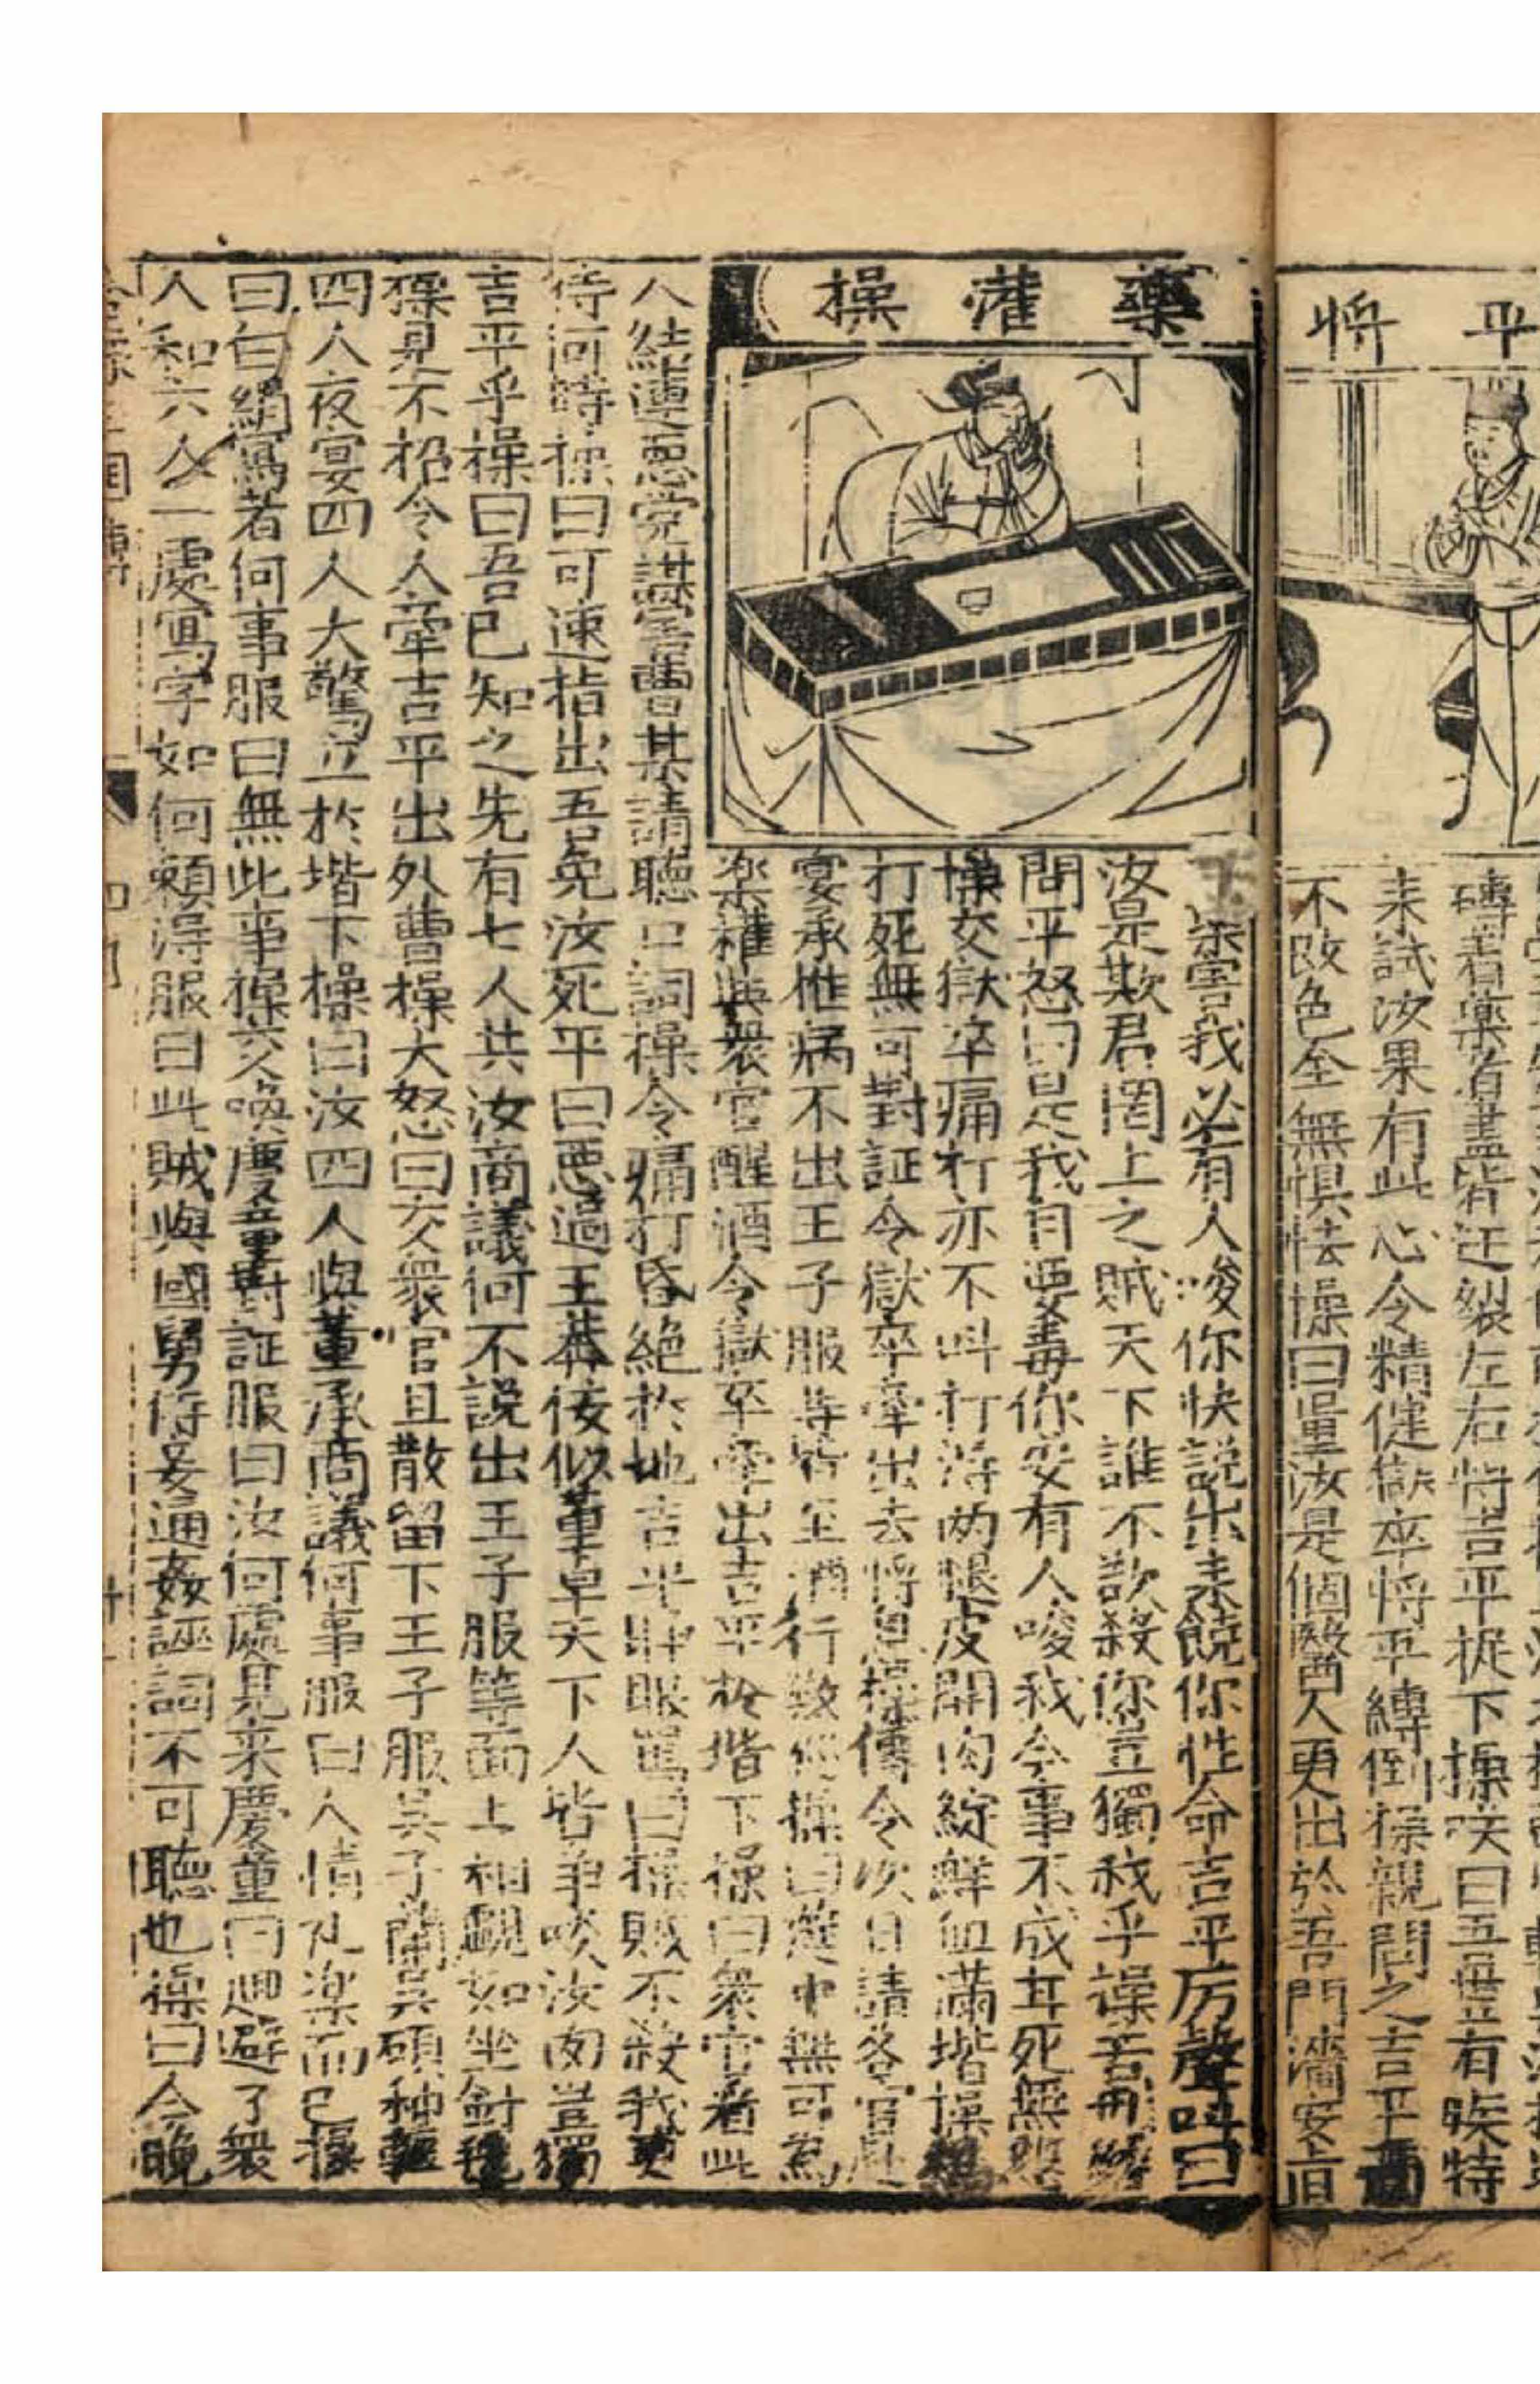 平將
磚着藥者盡皆迸裂左右將吉平捉下操笑曰吾豈有疾特
來試汝果有此心令精健獄卒將平縳倒操親問之吉平面
不改色全無惧怯操曰量汝是個醫人更出於吾門灑安
藥灌操
害我必有人唆你快說出來饒你性命吉平厉聲呌曰
汝是欺君罔上之賊天下誰不欲殺你豈獨我乎操再
問平怒曰是我自要毒你安有人唆我今事不成有死無
操交獄卒痛打亦不叫打得两腿皮開肉綻鮮血滿堦操
打死無可對証令獄卒牽出去將息操傳令次日請各官赴
宴承惟病不出王子服等皆至酒行数廵操曰筵中無可為
楽權與衆官醒酒令獄卒牽出吉平於堦下操曰衆官看此
人結連惡党謀害曹某請聽口詞操令痛打昏絶於地吉平睁眼罵曰操賊不殺我更
待何時操曰可速指出吾免汝死平曰惡過王莾佞似董卓天下人皆争啖汝肉豈獨
吉平乎操曰吾已知之先有七人共汝商議何不說出王子服等面上相覷如坐針毡
操見不招令人牽吉平出外曹操大怒曰交衆官且散留下王子服吴子蘭吴碩种輯
四人夜宴四人大驚立於堦下操曰汝四人與董承商議何事服曰人情礼楽而已操
曰白絹寫着何事服曰無此事操交喚慶童對証服曰汝何處見來慶童曰廻避了衆
人和六人一處寫字如何頼淂服曰此賊與國舅侍妾通姦誣詞不可聽也操曰今晚